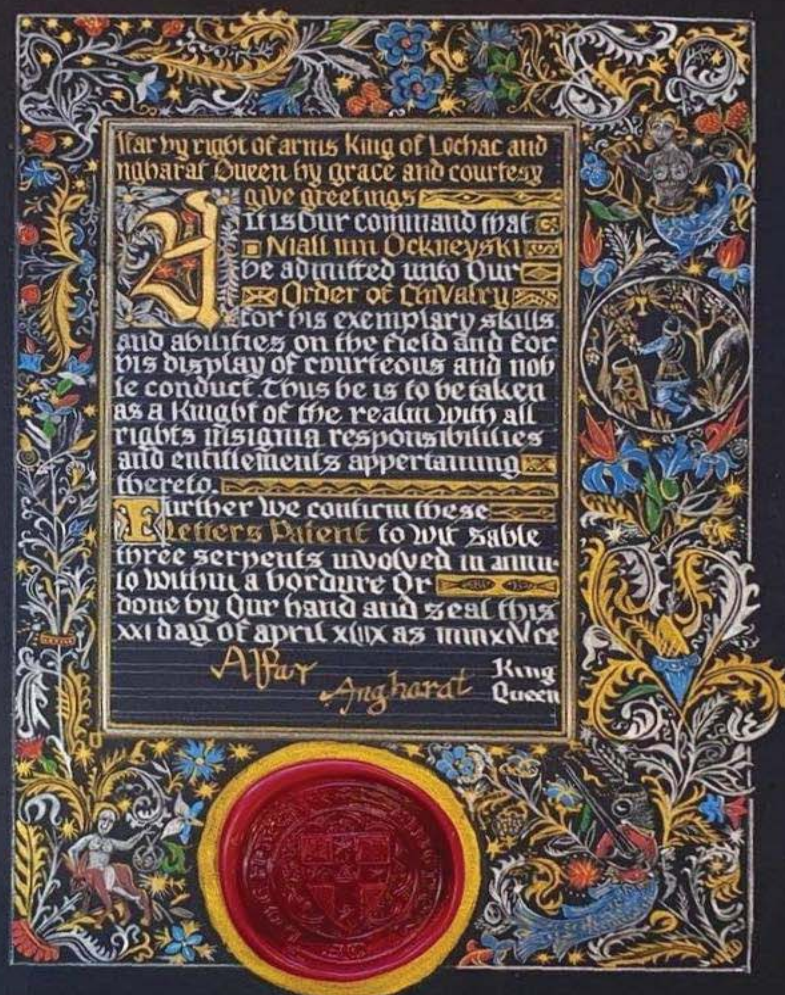 lfar by right of arms King of Lochac and
ngharat Queen by grace and courtesy
A give greetings
It is Our command that
Niall inn Orkneyski
be admitted unto Our
Order of Chivalry
for his exemplary skills
and abilities on the field and for
his display of courteous and nob
le conduct Thus he is to be taken
as a Knight of the realm with all
rights insignia responsibilities
and entitlements appertaining
thereto.
Further We confirm these
Letters Patent to wit Sable
three serpents involved in annu-
lo within a bordure Or
done by Our hand and seal this
xxi day of april xliix as mmxiv ce
Alfar King
Angharat Queen